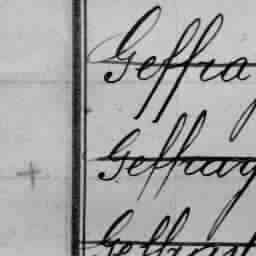 Geffra
Geffray